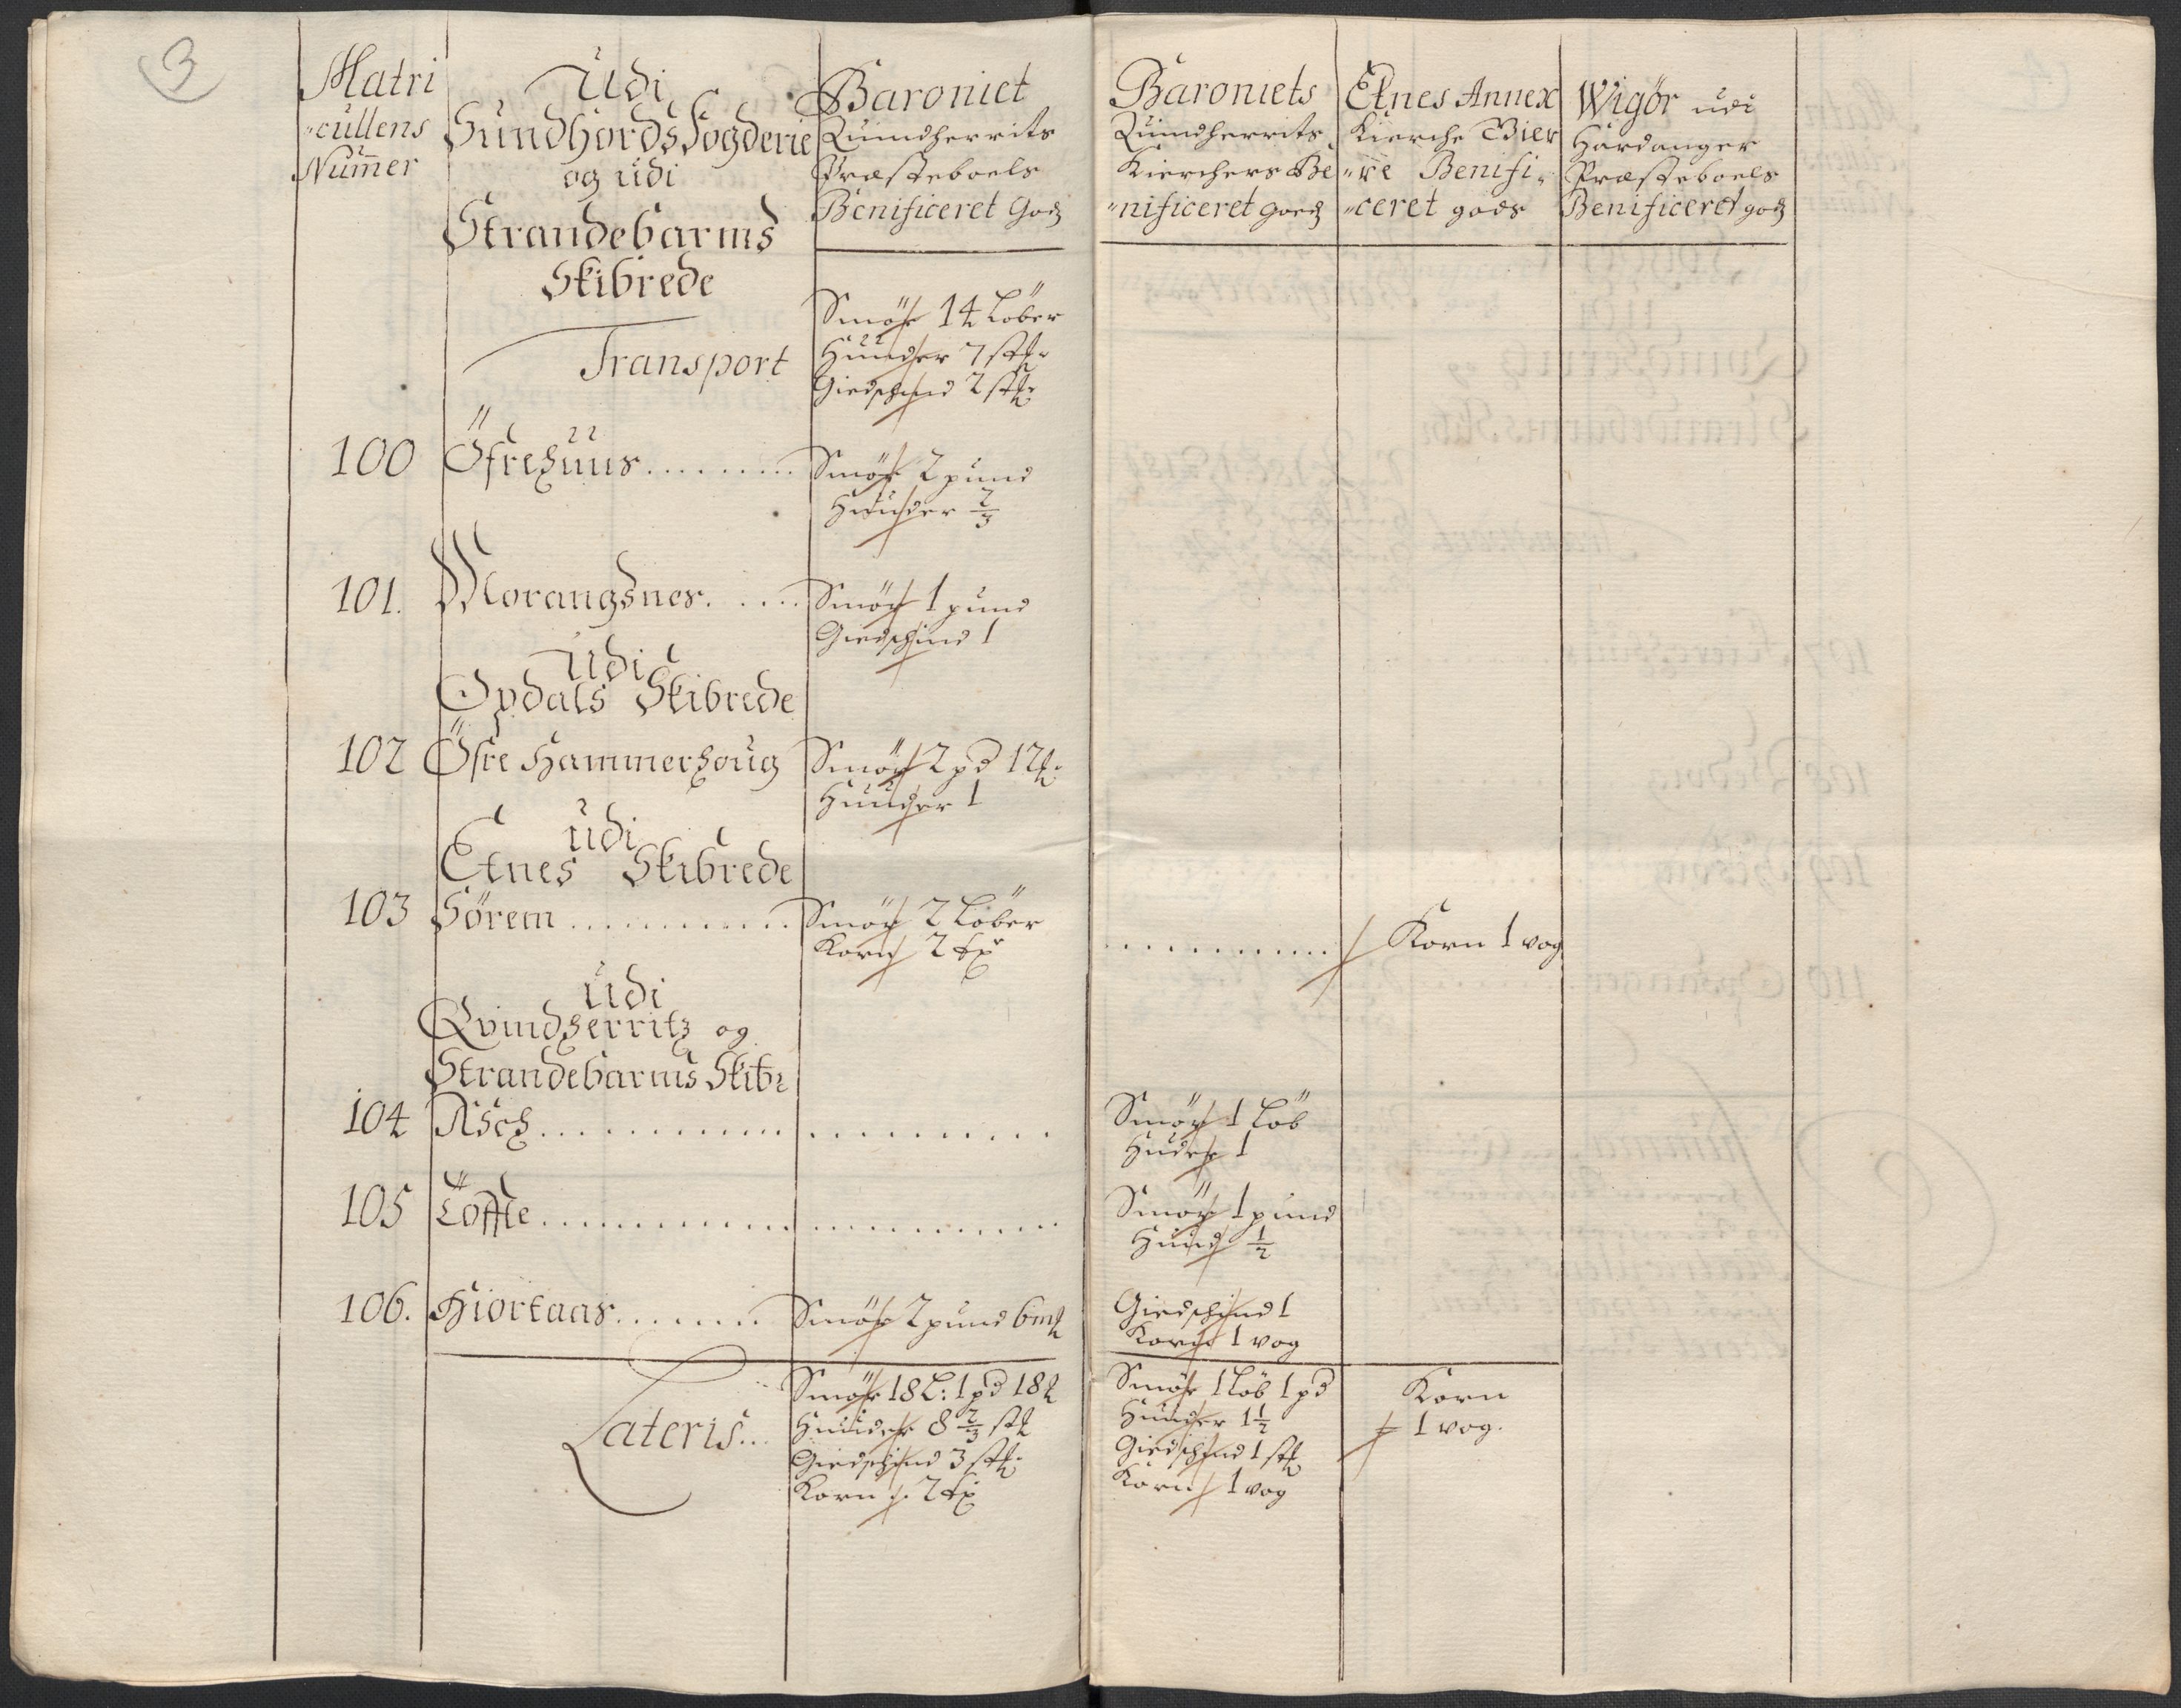 3
Matri
"cullens
Nummer
Udi
Sundhords Fogderie
og udi
Strandebarms
Skibrede
Baroniet
Quindherrits
Præsteboels
Benificeret Godz
Baroniets
Quindherrits
Kierchers Be
"nificeret goedz
Etnes Annex
Kierche Bier
"re Benifi"
"ceret gods
Wigør udi
Hardanger
Præsteboels
Benificeret godz
Transport
Smør 14 Løber
Huuder 7 stk.
Giedschind 2 stk.
100 Öfrehuus
Smør 2 pund
Huuder 2/3
101. Morangsnes
Smør 1 pund
Giedschind 1
Udi
Opdals Skibrede
102 Öfre Hammerhoug
Smør 2 pd 12
Huuder 1
Udi
Etnes Skibrede
103 Sörem
Smør 2 Løber
Korn 2
Korn 1 vog
Udi
Qvindherritz og
Strandebarms Skibr
104 Asch
Smør 1 Løb
Huder 1
105 Löffle
Smør 1 pund
Huud 1/2
106. Hiortaas
Smør 2 pund 6 mk
Giedschind 1
Korn 1 vog
Lateris
Smør 18 L: 1 pd 18
Huuder 8 2/3 stk
Giedschind 3 stk.
Korn 2
Smør 1 Løb 1 pd
Huuder 1 1/2
Giedschind 1 stk
Korn 1 vog
Korn
1 vog.